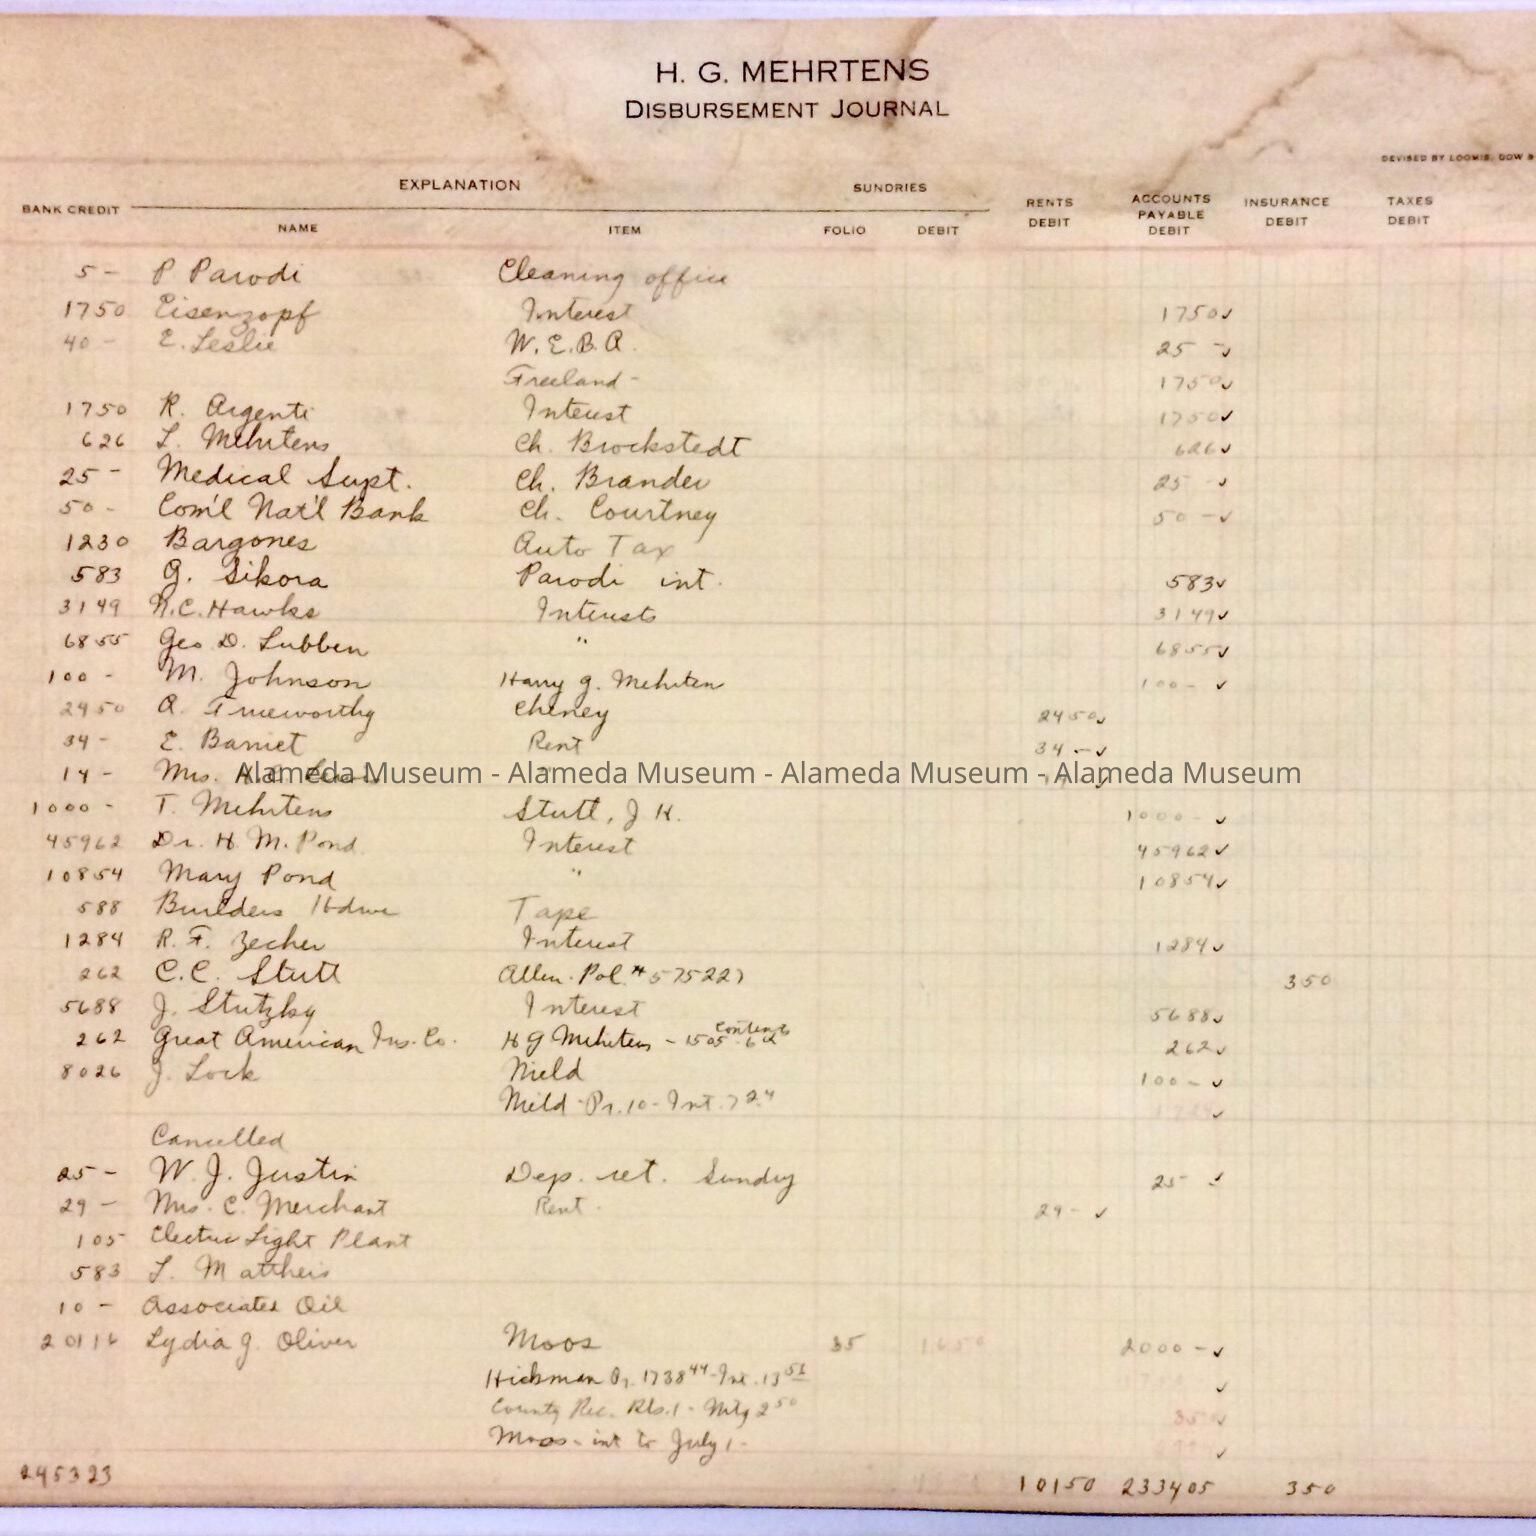 H. G. MEHRTENS
DISBURSEMENT JOURNAL
DEVISED BY LOOMIS, DOW &
EXPLANATION SUNDRIES
BANK CREDIT NAME ITEM FOLIO DEBIT RENTS DEBIT ACCOUNTS PAYABLE DEBIT INSURANCE DEBIT TAXES DEBIT
5 - P Parodi Cleaning office
1750 Eisenzopf Interest 1750✓
40 - E. Leslie W. E. B. A. 25 -✓
Freeland - 1750✓
1750 R. Argenti Interest 1750✓
626 L. Mehrtens Ch. Brockstedt 626✓
25 - Medical Supt. Ch. Brander 25 -✓
50 - Com'l Nat'l Bank Ch. Courtney 50 -✓
1230 Bargones Auto Tax
583 G. Sikora Parodi int. 583✓
3149 N.C. Hawks Interests 3149✓
6855 Geo D. Lubben " 6855✓
100 - M. Johnson Harry G. Mehrten 100 - ✓
2450 A. Trueworthy Cheney 2450✓
34 - E. Barriet Rent 34 -✓
14 - Mrs. ✓
Alameda Museum - Alameda Museum - Alameda Museum - Alameda Museum
1000 - T. Mehrtens Stutt, J H. 1000 - ✓
45962 Dr. H. M. Pond Interest 45962✓
10854 Mary Pond " 10854✓
588 Builders Hdwe Tape
1284 R. F. Zecher Interest 1284✓
262 C.C. Stutt Allen. Pol. # 575227 350
5688 J. Stutzky Interest 5688✓
262 Great American Ins. Co. H G Mehrtens - 1505 - 6th Contents 262✓
8026 J. Lock Nield 100 - ✓
Nield - Pr. 10 - Int. 7 24 ✓
Cancelled
25 - W. J. Justin Dep. ret. Sundry 25 - ✓
29 - Mrs. C. Merchant Rent - 29 - ✓
105 Electric Light Plant
583 L. Mattheis
10 - Associated Oil
20116 Lydia G. Oliver Moos 35 1650 2000 - ✓
Hickman Pr. 1738 44 - Int. 13 51 ✓
County Rec. Rls. 1 - Mtg 2 50 350✓
Moos - int to July 1 - ✓
245323 10150 233405 350